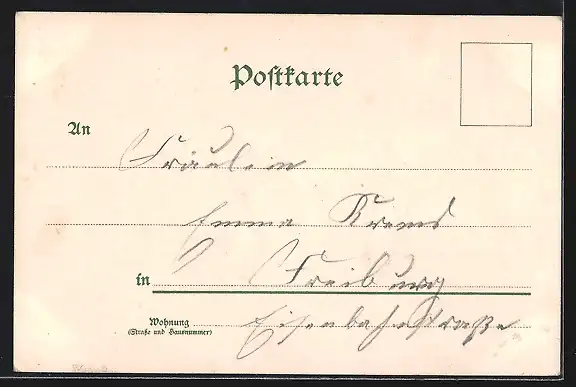 Postkarte
An
Fräulein
Emma
in Freiburg
Wohnung Eisenbahnstraße
(Straße und Hausnummer)